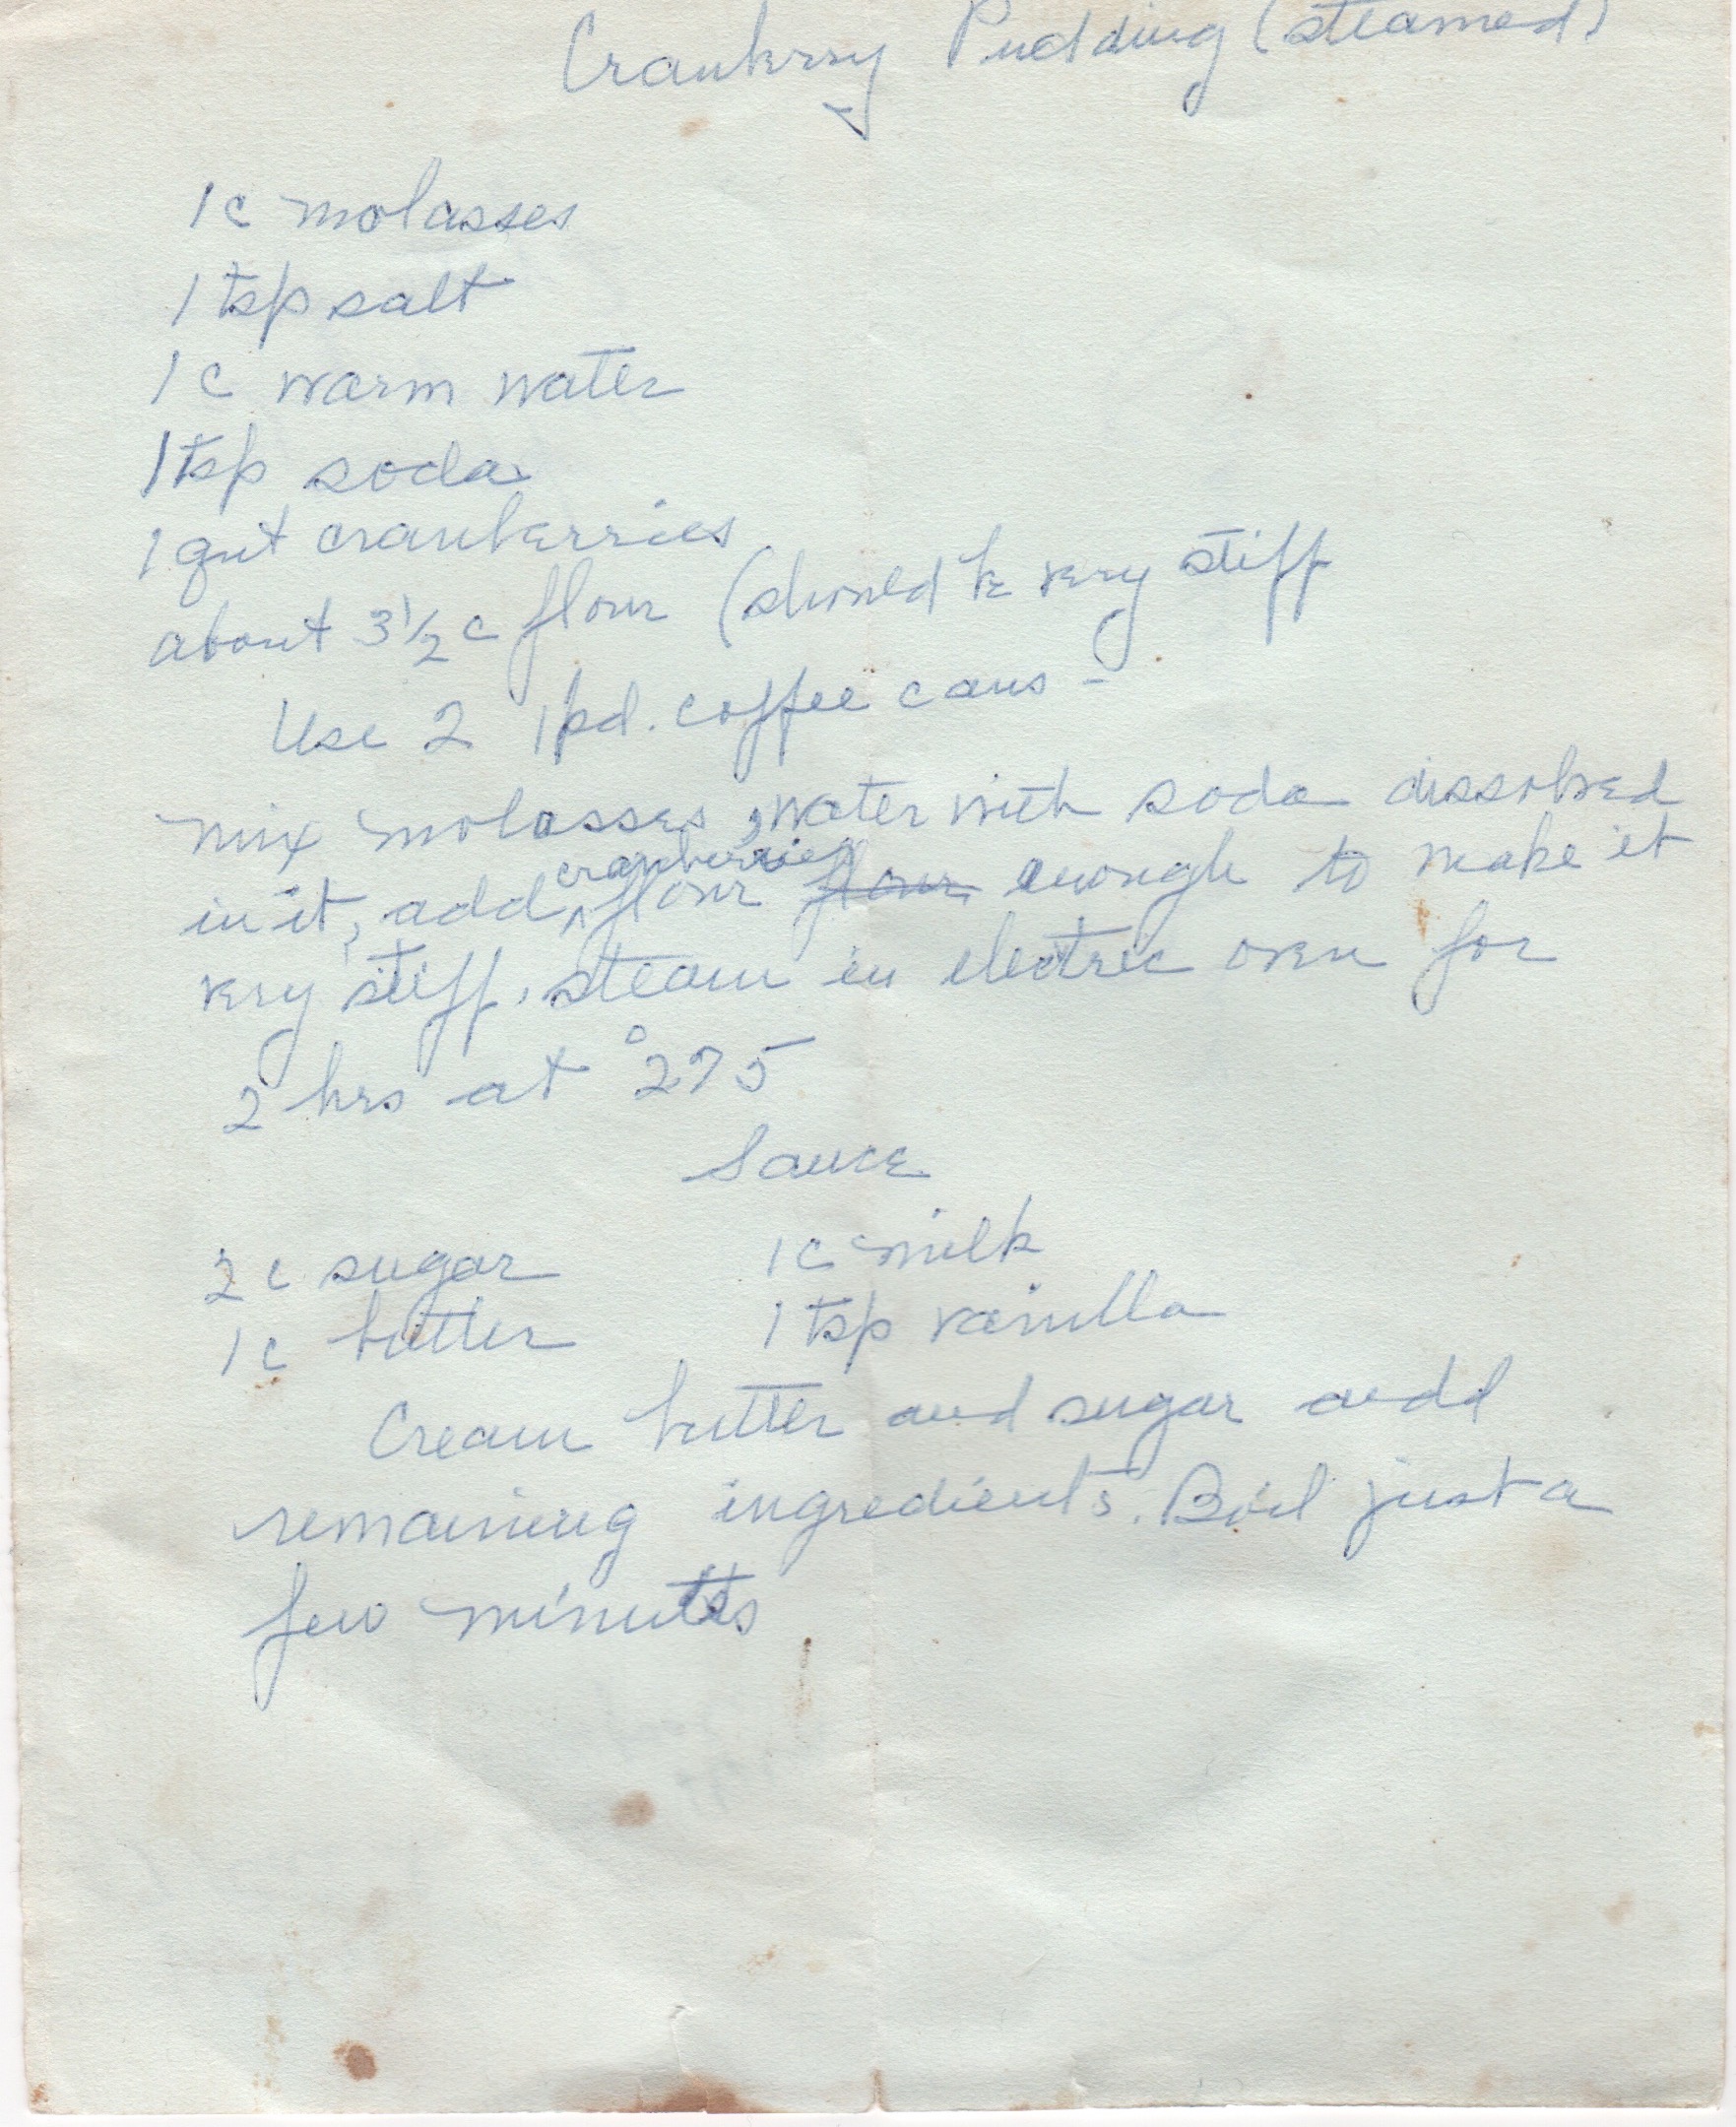 Cranberry Pudding (steamed)
1 c molasses
1 tsp salt
1 c warm water
1 tsp soda
1 qut cranberries
about 3 1/2 c flour (should be very stiff
Use 2 1 pd. coffee cans -
mix molasses, water with soda dissolved
in it, add cranberries flour flour enough to make it
very stiff, steam in electric oven for
2 hrs at °275
Sauce
2 c sugar 1 c milk
1 c butter 1 tsp vanilla
Cream butter and sugar add
remaining ingredients. Boil just a
few minutes